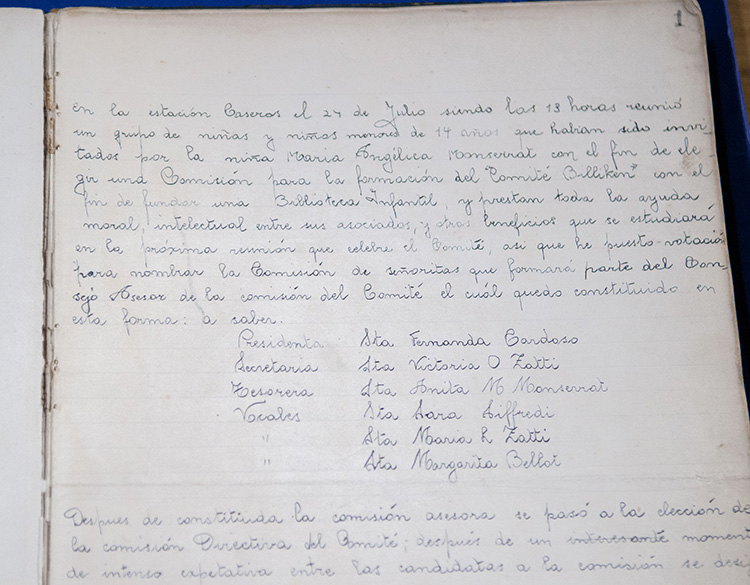 1
En la estación Caseros el 24 de Julio siendo las 13 horas reunió
un grupo de niñas y niños menores de 14 años que habian sido invi-
tados por la niña Maria Angélica Monserrat con el fin de ele-
gir una Comisión para la formación del "Comité Billiken" con el
fin de fundar una Biblioteca Infantil, y prestan toda la ayuda
moral, intelectual entre sus asociados, y otros beneficios que se estudiará
en la próxima reunión que celebre el Comité, asi que he puesto votación
para nombrar la Comisión de señoritas que formará parte del Con-
sejo Asesor de la comisión del Comité el cuál quedo constituido en
esta forma: a saber.
Presidenta Sta Fernanda Cardoso
Secretaria Sta Victoria O Zatti
Tesorera Sta Anita M Monserrat
Vocales Sta Sara Liffredi
" Sta Maria L Zatti
" Sta Margarita Bellot
Despues de constituida la comisión asesora se pasó a la elección de
la comisión Directiva del Comité; después de un interesante moment
de intenso expetativa entre las candidatas a la comisión se